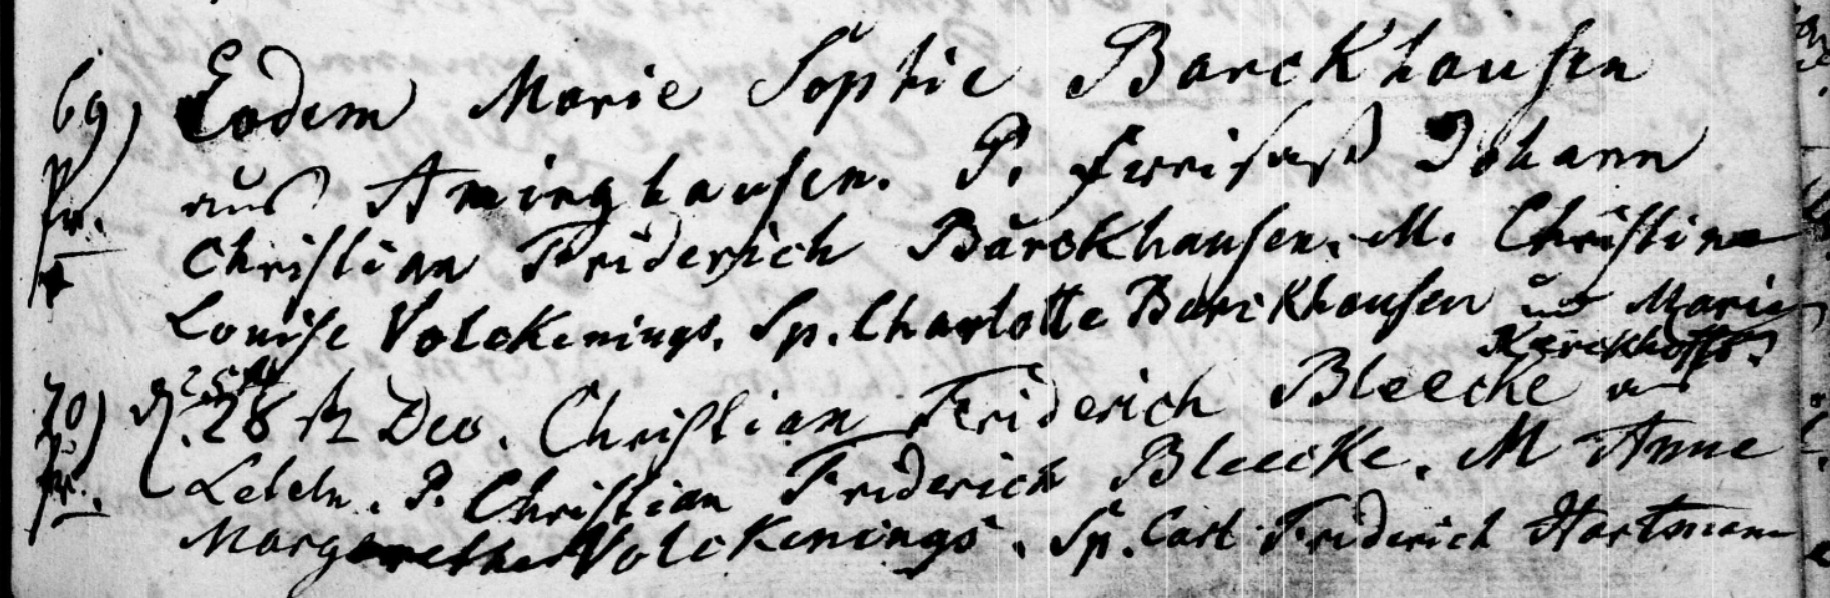 69) Eodem Marie Sophie Barckhausen
pr. aus Aminghausen. P. Johann
Christian Friderich Barckhausen. M. Christine
Louise Volckenings. Sp. Charlotte Barckhausen und Marie
Kerckhoffs.
25st
70) d. 28st Dec. Christian Friderich Bleecke aus
pr. Leteln. P. Christian Friderich Bleecke. M Anne
Margarethe Volckenings. Sp. Carl Friderich Hartmann